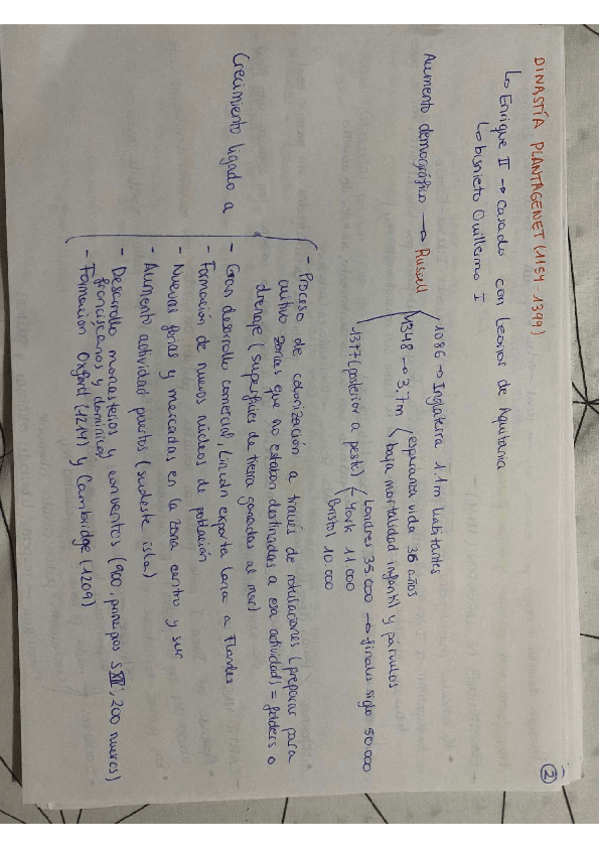 ②
DINASTÍA PLANTAGENET (1154-1399)
↳ Enrique II → Casado con Leonor de Aquitania
↳ bisnieto Guillermo I
Aumento demográfico → Russell
1086 → Inglaterra 1.1m habitantes
1348 → 3.7m
esperanza vida 36 años
baja mortalidad infantil y párvulos
1377 (posterior a peste)
Londres 35.000 → finales siglo 50.000
York 11.000
Bristol 10.000
Crecimiento ligado a
- Proceso de colonización a través de roturaciones (preparar para
cultivo zonas que no estaban destinadas a esa actividad) = pólders o
drenaje (superficies de tierra ganadas al mar)
- Gran desarrollo comercial, Lincoln exporta lana a Flandes
- Formación de nuevos núcleos de población
- Nuevas ferias y mercados en la zona centro y sur
- Aumento actividad puertos (sudeste isla)
- Desarrollo monasterios y conventos (900, principios S XIII, 200 nuevos)
franciscanos y dominicos
- Formación Oxford (1214) y Cambridge (1209)